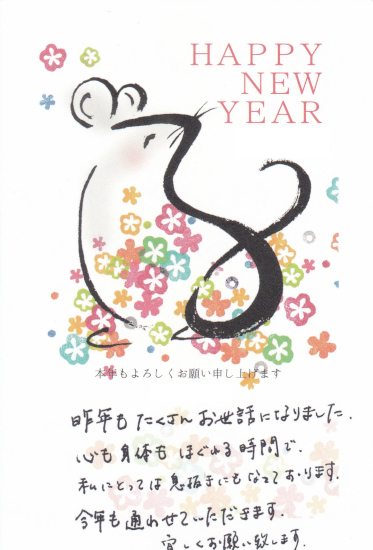 HAPPY
NEW
YEAR
本年もよろしくお願い申し上げます
昨年も たくさん お世話になりました.
心も身体も ほぐれる 時間で.
私にとっては 息抜きにもなっております.
今年も通わせていただきます.
宜しくお願い致します.